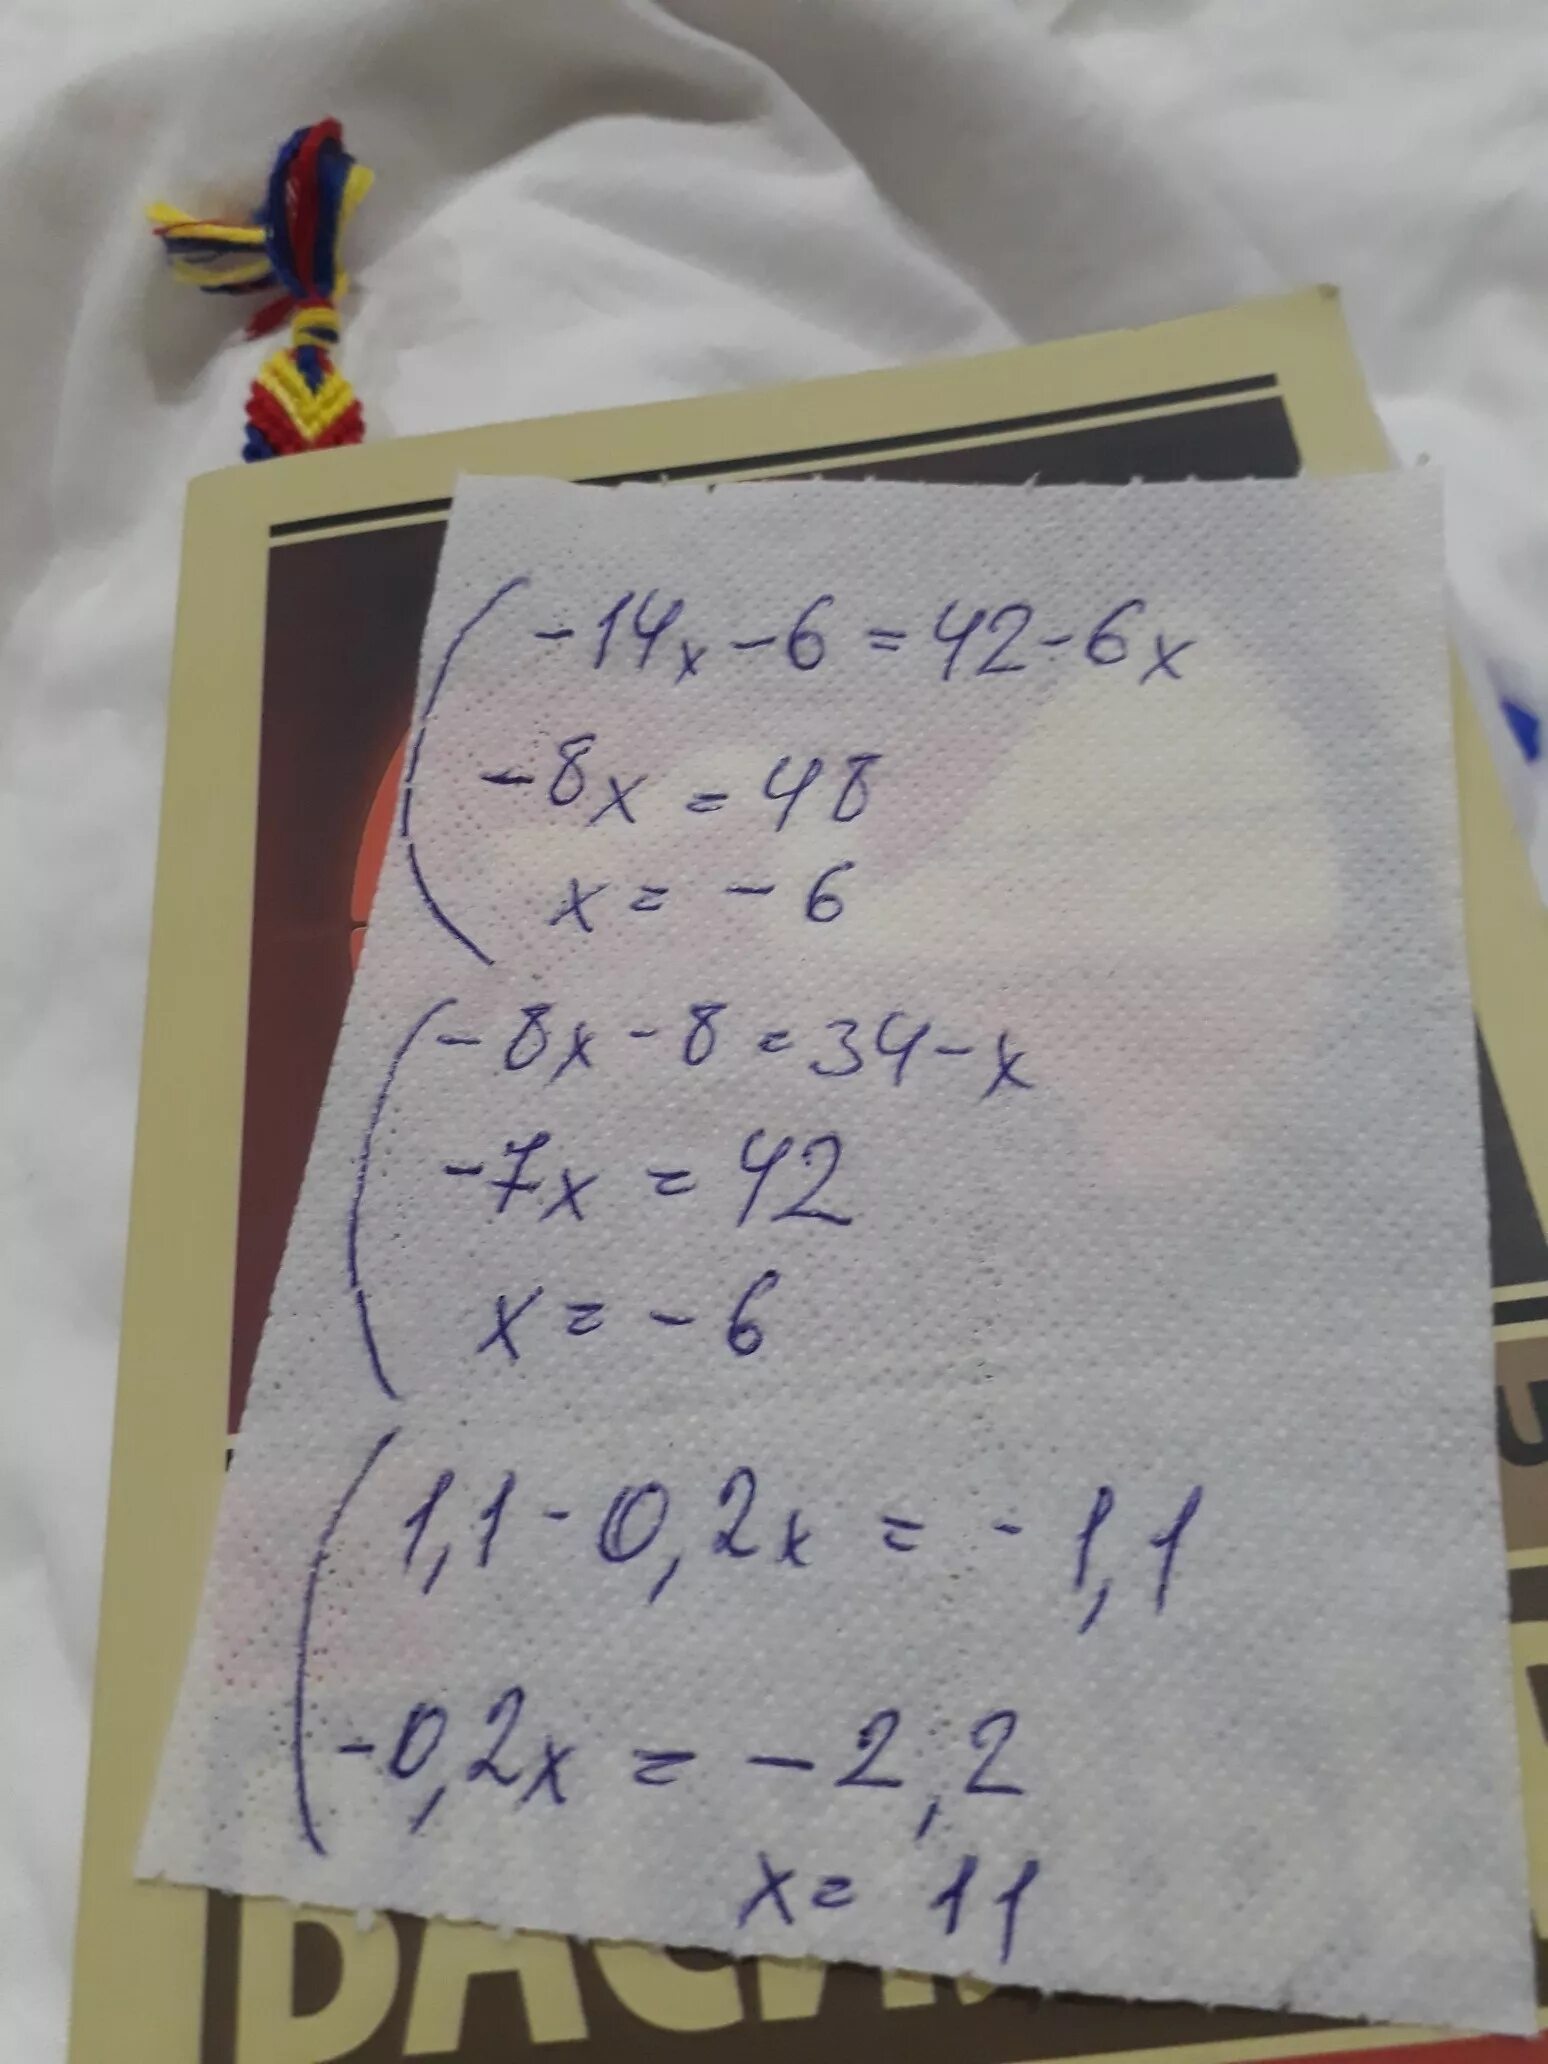 -14x - 6 = 42 - 6x
-8x = 48
x = -6
-8x - 8 = 34 - x
-7x = 42
x = -6
1,1 - 0,2x = -1,1
-0,2x = -2,2
x = 11